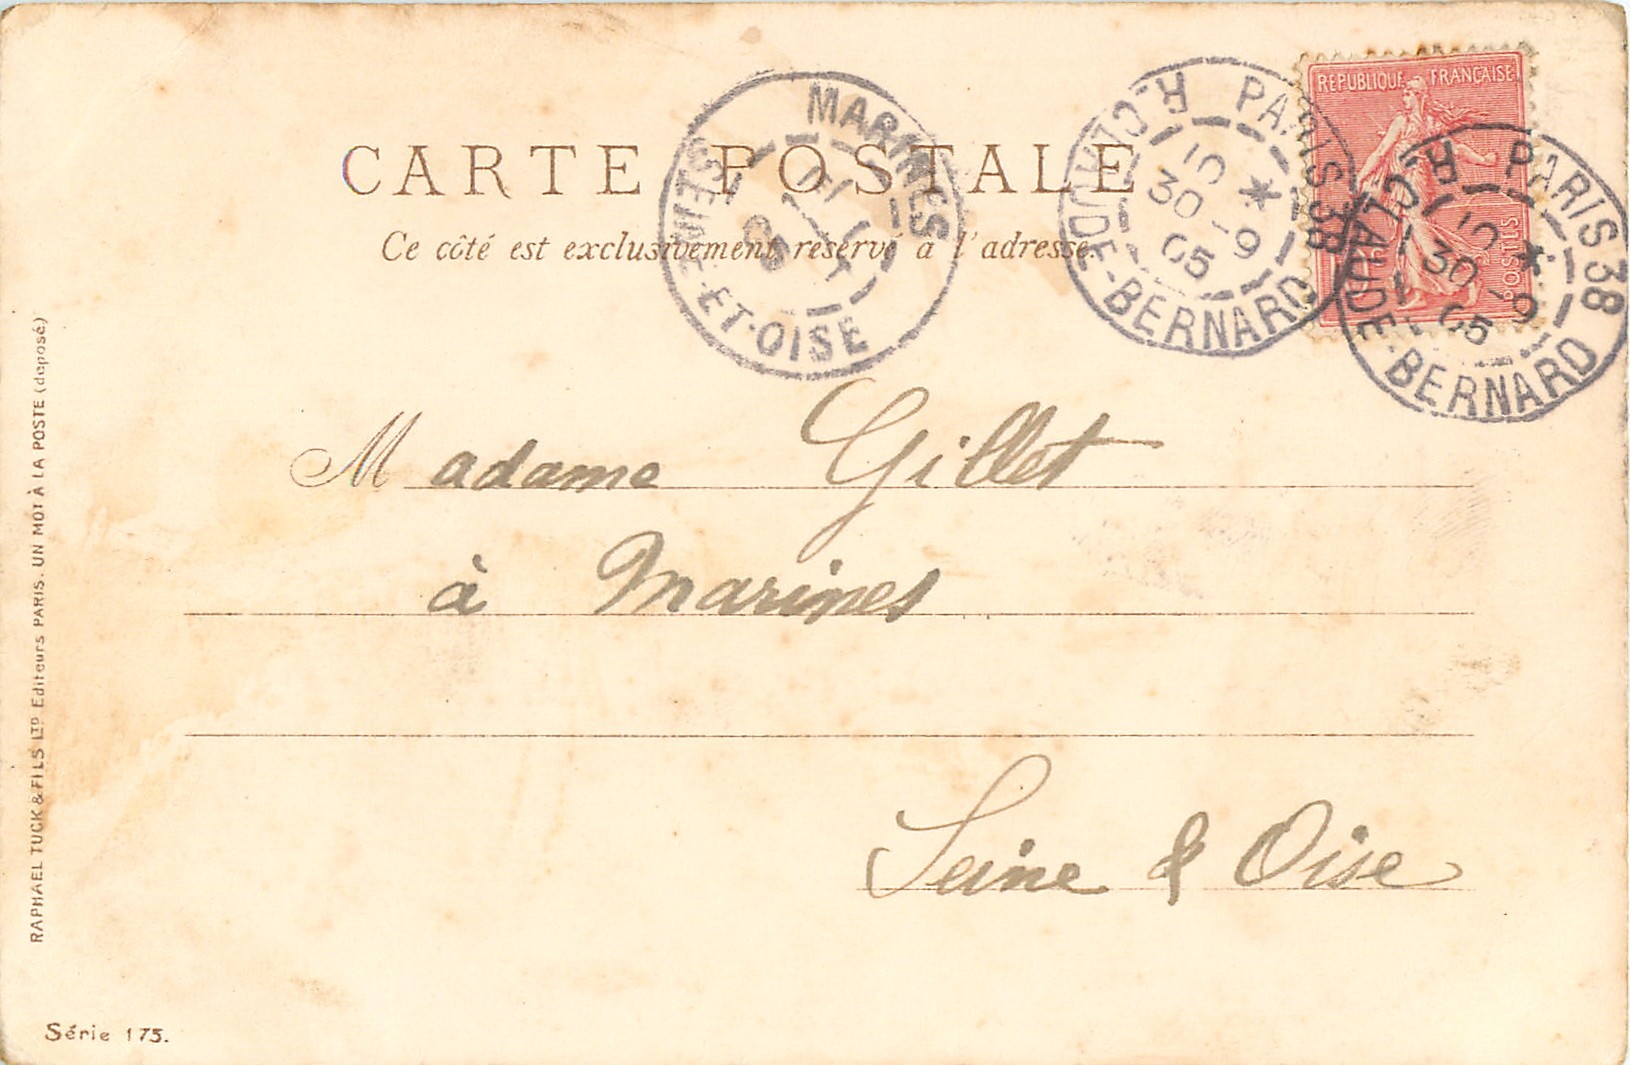 CARTE POSTALE
Ce côté est exclusivement réservé à l'adresse.
MARINES
SEINE-ET-OISE
05
PARIS 38
R. CLAUDE-BERNARD
10
30 - 9
05
RÉPUBLIQUE FRANÇAISE
POSTES
PARIS 38
R. CLAUDE-BERNARD
10
30 - 9
05
Madame Gillet
à Marines
Seine & Oise
RAPHAEL TUCK & FILS LTD Editeurs PARIS. UN MOT À LA POSTE (deposé)
Série 175.